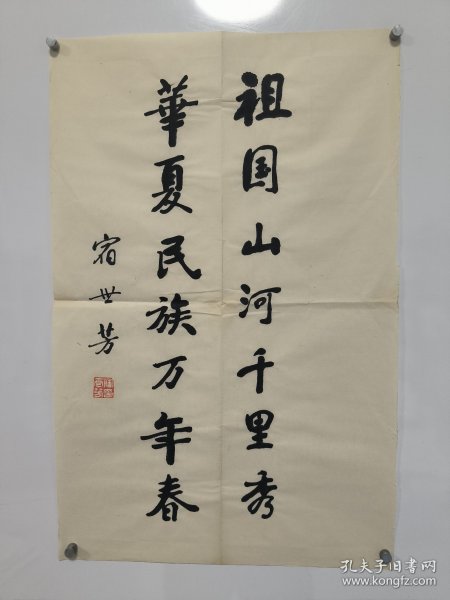 祖国山河千里秀
華夏民族万年春
宿世芳
孔夫子旧书网
www.kongfz.com